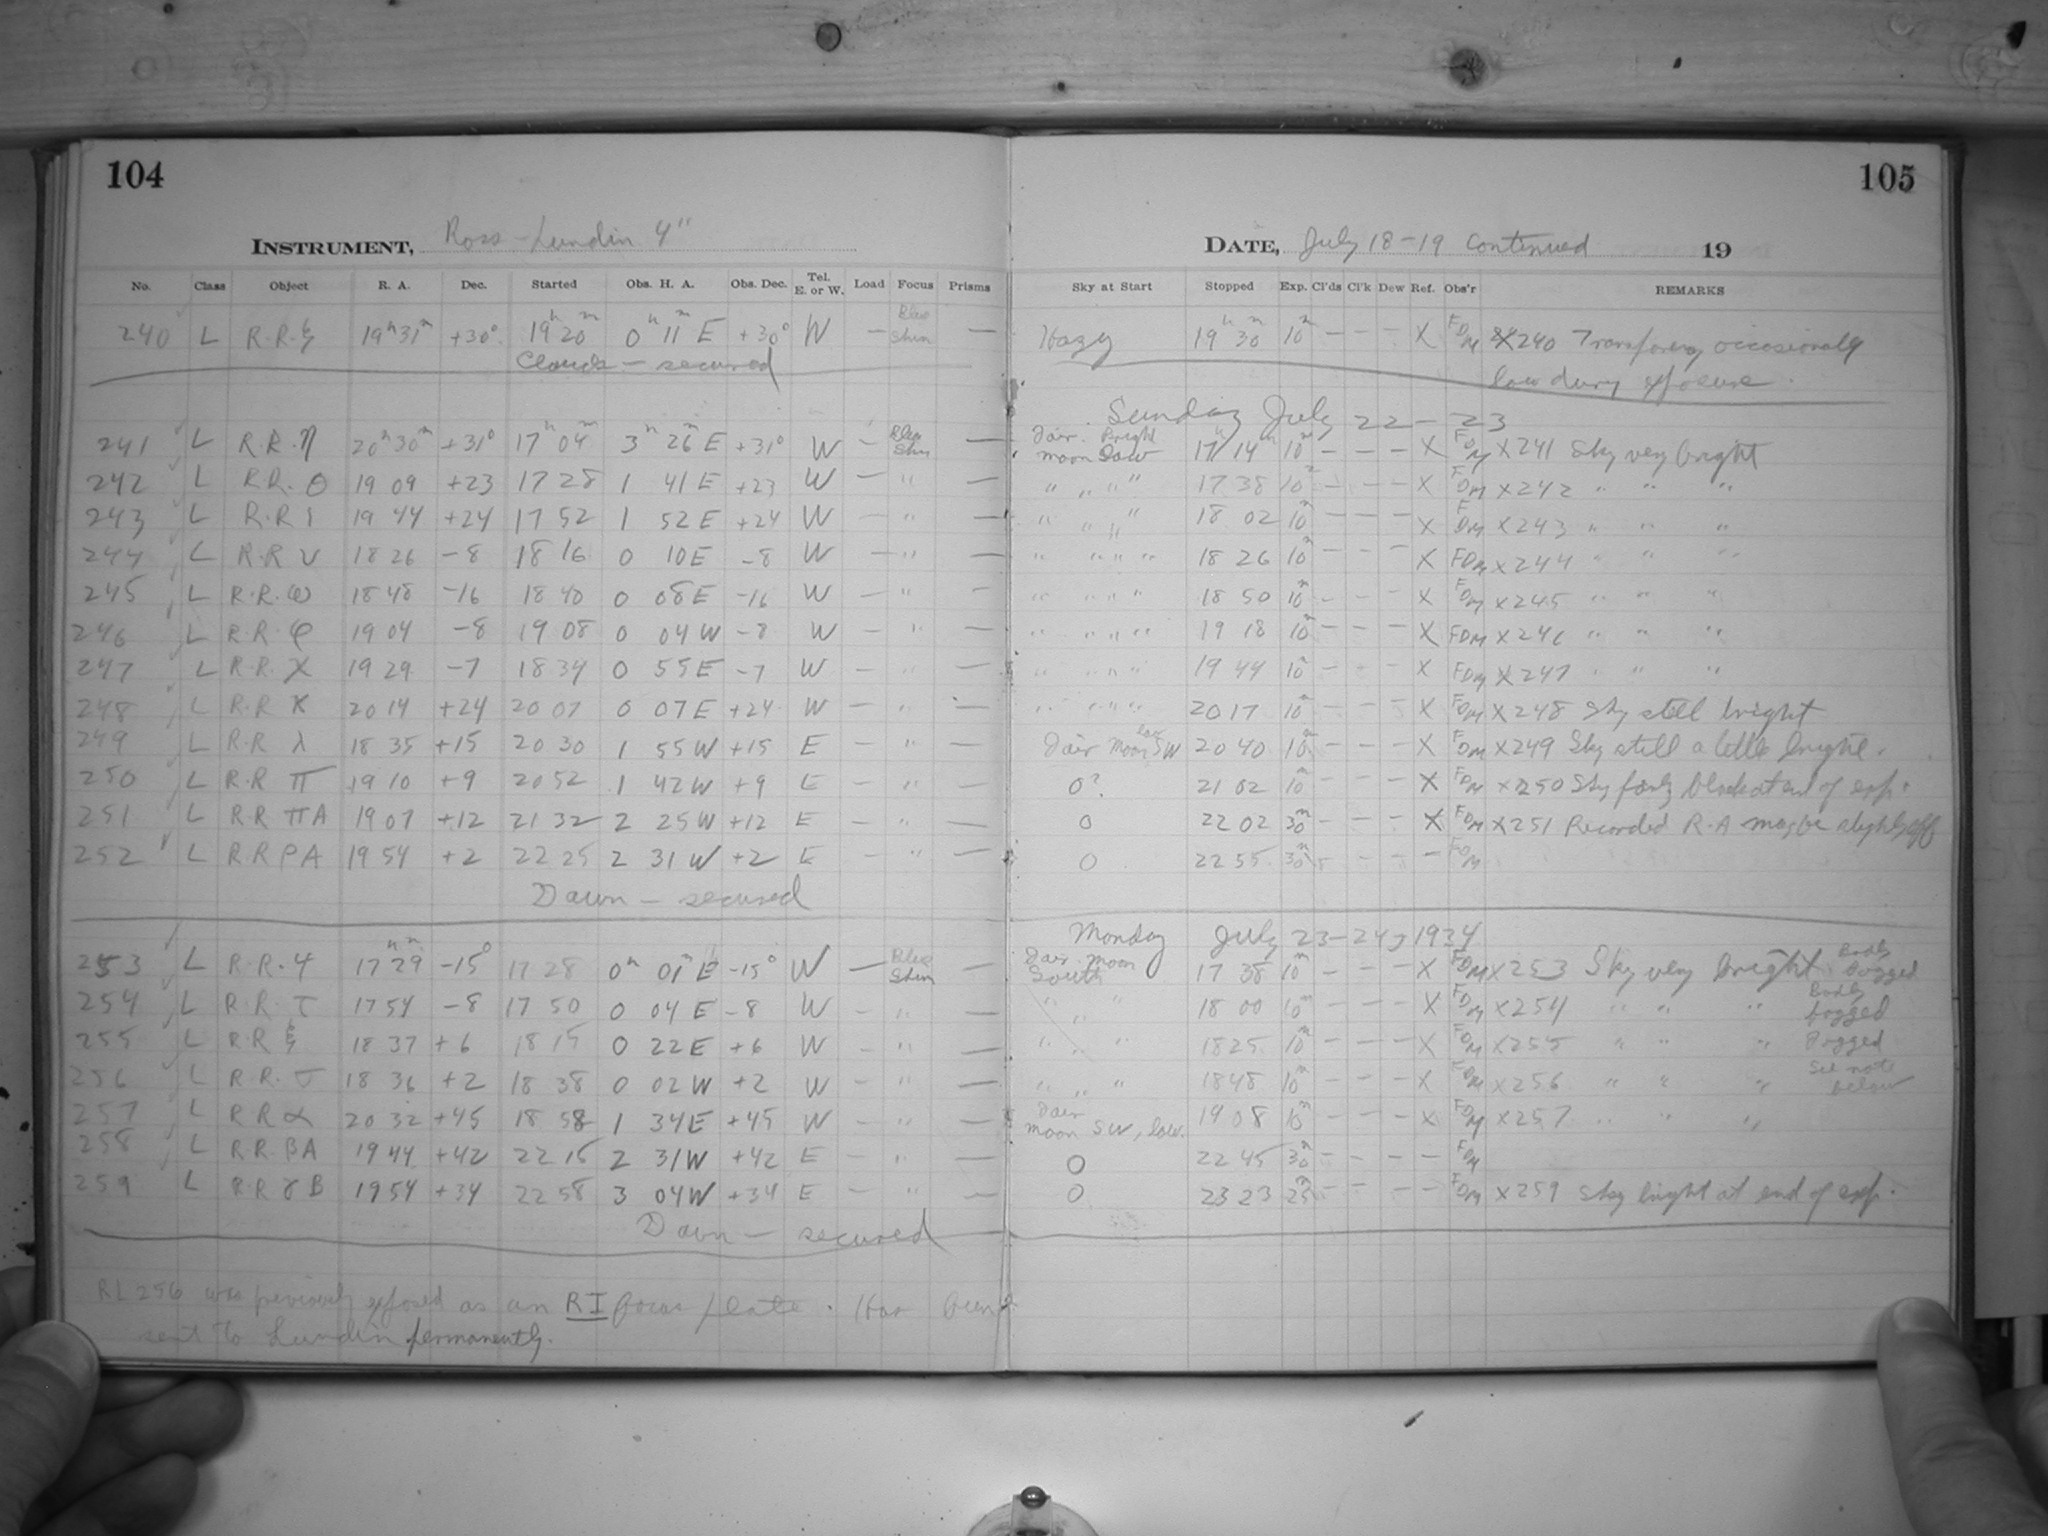 104
105
INSTRUMENT, Ross-Lundin 4"
DATE, July 18-19 Continued 19
No. Class Object R. A. Dec. Started Obs. H. A. Obs. Dec. Tel. E. or W. Load Focus Prisms Sky at Start Stopped Exp. Cl'ds Cl'k Dew Ref. Obs'r REMARKS
240 L R.R. 19h 31m +30° 19h 20m 0h 11m E +30° W — Blue Shim — Hazy 19h 30m 10m — — — X FDM X240 Transparency occasionally
Clouds — secured
low during exposure.
Sunday July 22-23
241 L R.R. η 20h 30m +31° 17h 04m 3h 26m E +31° W — Blue Shim — Fair. Bright moon low 17h 14m 10m — — — X FDM X241 Sky very bright
242 L R.R. θ 19 09 +23 17 28 1 41 E +23 W — " — " " " " 17 38 10m — — — X FDM X242 " " "
243 L R.R ι 19 44 +24 17 52 1 52 E +24 W — " — " " " " 18 02 10m — — — X FDM X243 " " "
244 L R.R υ 18 26 -8 18 16 0 10 E -8 W — " — " " " " 18 26 10m — — — X FDM X244 " " "
245 L R.R. ω 18 48 -16 18 40 0 08 E -16 W — " — " " " " 18 50 10m — — — X FDM X245 " " "
246 L R.R. φ 19 04 -8 19 08 0 04 W -8 W — " — " " " " 19 18 10m — — — X FDM X246 " " "
247 L R.R. χ 19 29 -7 18 34 0 55 E -7 W — " — " " " " 19 44 10m — — — X FDM X247 " " "
248 L R.R κ 20 14 +24 20 07 0 07 E +24 W — " — " " " " 20 17 10m — — — X FDM X248 Sky still bright
249 L R.R λ 18 35 +15 20 30 1 55 W +15 E — " — Fair moon low SW 20 40 10m — — — X FDM X249 Sky still a little bright.
250 L R.R π 19 10 +9 20 52 1 42 W +9 E — " — O? 21 02 10m — — — X FDM X250 Sky fairly black at end of exp.
251 L R.R πA 19 07 +12 21 32 2 25 W +12 E — " — O 22 02 30m — — — X FDM X251 Recorded R.A may be slightly off
252 L R.R ρA 19 54 +2 22 25 2 31 W +2 E — " — O 22 55 30m — — — — FDM
Dawn — secured
Monday July 23-24, 1934
253 L R.R. ψ 17h 29m -15° 17 28 0h 01m E -15° W — Blue Shim — Fair. moon South 17 38 10m — — — X FDM X253 Sky very bright. Badly fogged
254 L R R τ 17 54 -8 17 50 0 04 E -8 W — " — " " " 18 00 10m — — — X FDM X254 " " " Badly fogged
255 L R R ξ 18 37 +6 18 15 0 22 E +6 W — " — " " " 18 25 10m — — — X FDM X255 " " " Fogged
256 L R R. σ 18 36 +2 18 38 0 02 W +2 W — " — " " " 18 48 10m — — — X FDM X256 " " " See note below
257 L R R α 20 32 +45 18 58 1 34 E +45 W — " — Fair moon SW, low. 19 08 10m — — — X FDM X257 " " "
258 L R R βA 19 44 +42 22 15 2 31 W +42 E — " — O 22 45 30m — — — — FDM
259 L R R γB 19 54 +34 22 58 3 04 W +34 E — " — O 23 23 25m — — — — FDM X259 Sky bright at end of exp.
Dawn — secured
RL 256 was previously exposed as an RI focus plate. Has been
sent to Lundin permanently.